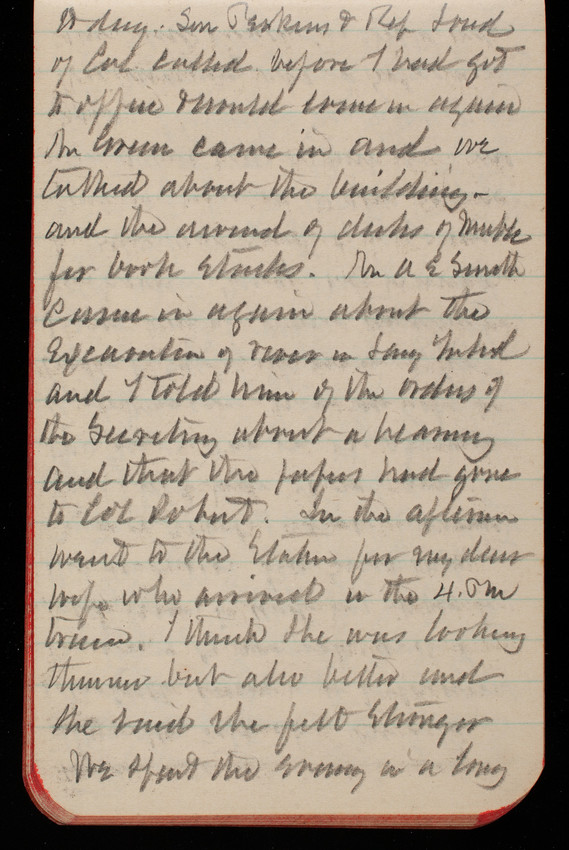 today. Sen Perkins & Rep Loud
of Cal called before I had got
to office & would come in again
Mr Green came in and we
talked about the building -
and the award of decks of Marble
for book Stacks. Mr A E Smith
Came in again about the
Excavation of river in Long Island
and I told him of the orders of
the Secretary about a hearing
and that the papers had gone
to Col Robert. In the afternoon
went to the Station for my dear
wife who arrived in the 4. P m
train. I think she was looking
thinner but also better and
she said she felt stronger
We spent the evening in a long